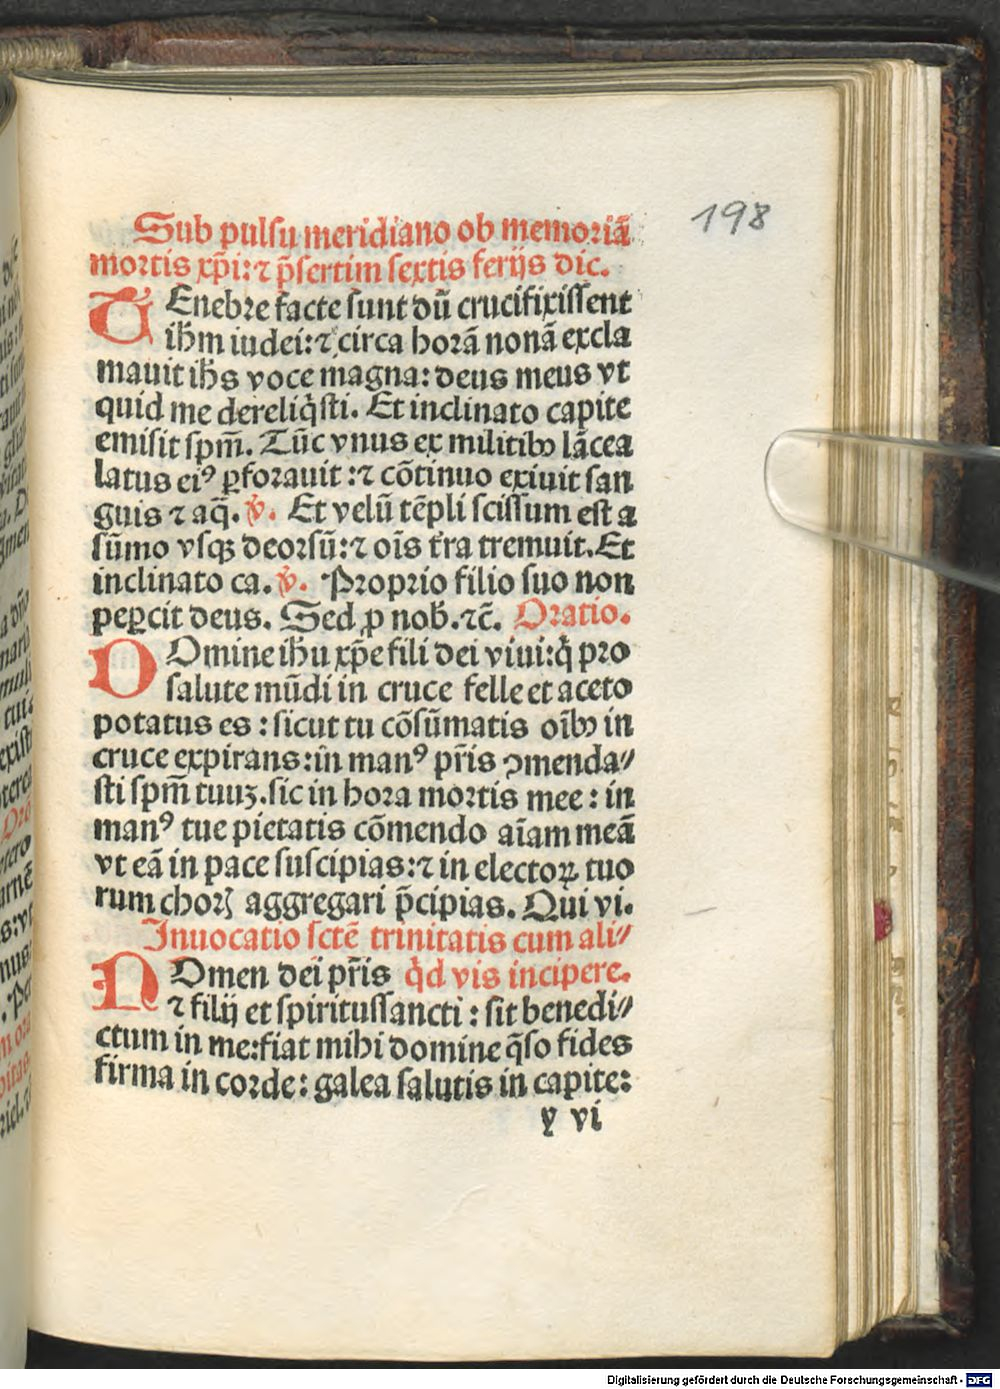 198
Sub pulsu meridiano ob memoriā
mortis xp̄i: ⁊ p̄sertim sextis ferijs dic.
TEnebre facte sunt dū crucifixissent
ih̄m iudei: ⁊ circa horā nonā excla
mauit ih̄s voce magna: deus meus vt
quid me dereliq̇sti. Et inclinato capite
emisit sp̄m. Tūc vnus ex militibꝰ lācea
latus eiꝰ ꝑforauit: ⁊ cōtinuo exiuit san
guis ⁊ aq̄. ꝟ. Et velū tēpli scissum est a
sūmo vsqꝫ deorsū: ⁊ oīs t̄ra tremuit. Et
inclinato ca. ꝟ. Proprio filio suo non
peꝑcit deus. Sed ꝓ nob̄. ⁊c̄. Oratio.
DOmine ih̄u xp̄e fili dei viui: q̇ pro
salute mūdi in cruce felle et aceto
potatus es: sicut tu cōsūmatis oībꝰ in
cruce expirans: in manꝰ pr̄is ꝯmenda//
sti sp̄m tuuꝫ. sic in hora mortis mee: in
manꝰ tue pietatis cōmendo aīam meā
vt eā in pace suscipias: ⁊ in electoꝝ tuo
rum choꝝ aggregari p̄cipias. Qui vi.
Inuocatio sctē trinitatis cum ali//
NOmen dei pr̄is q̇d vis incipere.
⁊ filij et spiritussancti: sit benedi//
ctum in me: fiat mihi domine q̄so fides
firma in corde: galea salutis in capite:
y vi
Digitalisierung gefördert durch die Deutsche Forschungsgemeinschaft - DFG